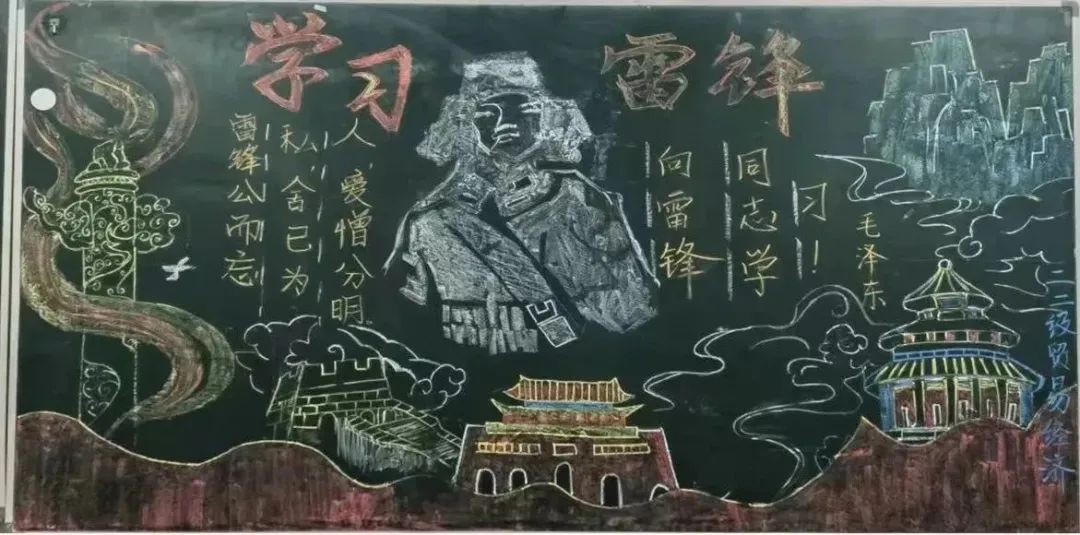 学习 雷锋
雷锋公而忘
私，舍己为
人，爱憎分明
向雷锋
同志学
习！
毛泽东
二二级贸易经济